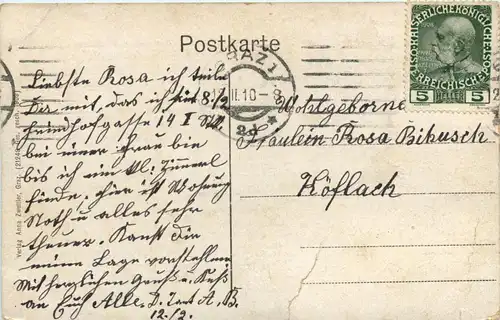 Postkarte
KAISERLICHEKÖNIGLICHE
ÖSTERREICHISCHE
5 HELLER 5
GRAZ 1
II.10-8
2d
Liebste Rosa ich teile
Dir mit, das ich seit 8/2
Feindhofgasse 14 I Stk.
bei einer Frau bin
bis ich ein kl. Zimmerl
finde, hier ist Wohnung
Noth u alles sehr
theuer. Kanst Dir
meine Lage vorstellen
Mit herzlichen Gruß u. Kuß
an Euch Alle. D. Tant A. B.
12./2.
Wohlgeborne
Fräulein Rosa Bibusch
Köflach
Verlag Anna Graz.